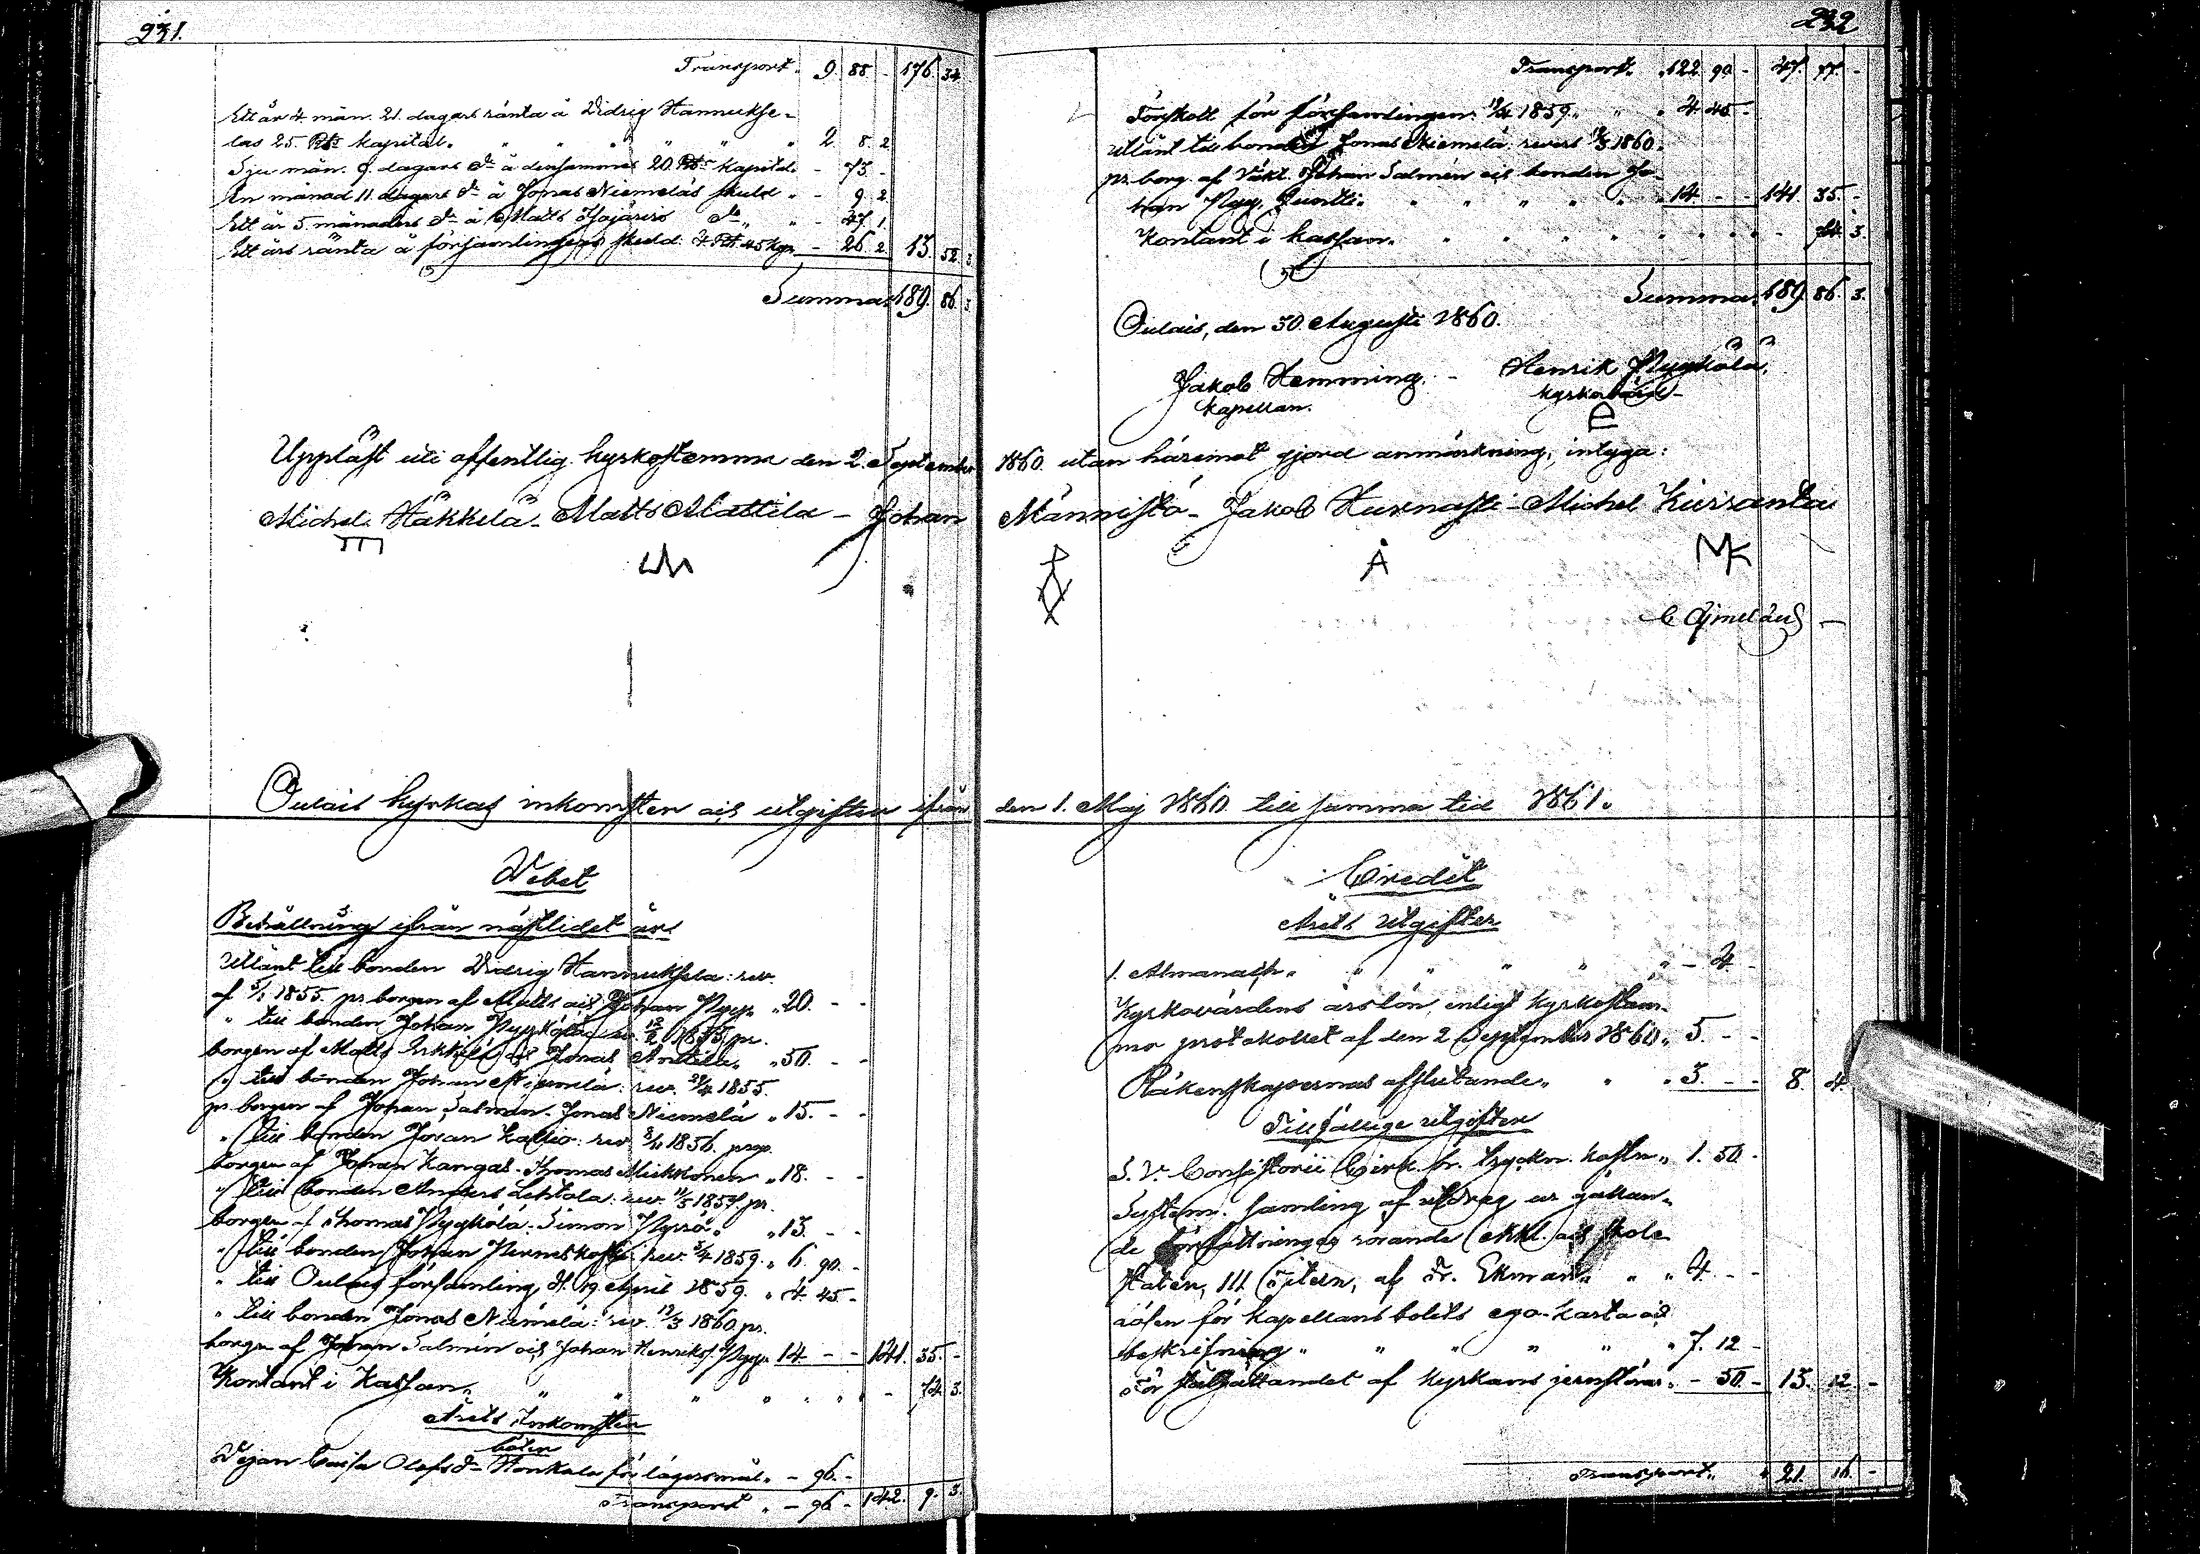 231.
Transport. 9. 88 - 176. 34.
Ett år 4. mån. 21. dagars ränta å Didrig Hannukse-
las 25. Rbl kapital. " " " " 2. 8. 2
Sju mån. 9. dagars do å densammes 20. Rbls kapital. - 73. -
En månad 11. dagars do å Jonas Niemeläs skuld " - 9. 2.
Ett år 5. månaders do å Matts do " - 47. 1.
Ett års ränta å församlingens skuld. 4 Rbl 45 kop. - 26. 2. 13. 52. 3
Summa 189. 86. 3.
Uppläst uti offentlig kyrkostemma den 2. September
Michel Häkkelä - Matts Mattila - Johan
Oulais kyrkas inkomster och utgifter ifrån
Debet
Behållning ifrån nästlidet år
Utlånt till bonden Didrig Hannuksela: rev.
af 5/1 1855. pr borgen af Matts och Johan Pyy. " 20. - -
" till bonden Johan Pyykölä rev. 1855. pr.
borgen af Matts Erkkilä och Jonas Anttila. " 50. - -
" till bonden Johan Niemelä: rev. 1855.
pr borgen af Johan Salmén. Jonas Niemelä " 15. - -
" till bonden Johan Kallio: rev. 1856. pr
borgen af Johan Kangas. Thomas Mikkonen " 18. - -
" till bonden Anders Lehtola: rev. 11/5 1857. pr.
borgen af Thomas Pyykölä. Simon " 13. - -
" till bonden Johan Pirneskoski rev. 1859. " 6. 90. -
" till Oulais församling d. 19. April 1859. " 4. 45 -
" till bonden Jonas Niemelä: rev. 12/3 1860 pr.
borgen af Johan Salmén och Johan Henriks. Pyy. 14. - - 141. 35. -
Kontant i kassan. " " " " " - 74. 3.
Årets Inkomster
böter
Pigan Caisa Olofsdr Honkala för lägersmål. - 96. -
Transport " - 96 - 142. 9. 3.
232
Transport. 122. 90 - 47. 77. -
Förskott för församlingen 19/4 1859. " " 4. 45 -
Utlånt till bonden Jonas Niemelä, revers 12/3 1860.
pr. borg. af Väkt. Johan Salmén och bonden Jo-
han Pyy, " " " " " 14. - - 141. 35. -
Kontant i kassan. " " " " " " - 74. 3.
Summa. 189. 86. 3.
Oulais, den 30. Augusti 1860.
Jakob Hemming. - Henrik Pyykölä,
kapellan. kyrkovärd -
1860. utan häremot gjord anmärkning, intyga:
Männistö - Jakob Kurnasti - Michel Kiiranta
Å MK
den 1. Maj 1860. till samma tid 1861.
Credit
Årets Utgifter
1. Almanach. " " " " " - 4. -
Kyrkovärdens årslön, enligt kyrkostäm-
mo protokollet af den 2 September 1860. " 5. - -
Räkenskapernas afslutande. " " 3. - - 8. 4.
Tillfällige utgifter
S. V. Consistorii Cirk. br. tryckn. kostn. " 1. 50 -
System. samling af utdrag ur gällan-
de författningar rörande Eckl. och skole
staten, III af Fr. Ekman. " " 4. - -
Lösen för kapellansbolets ego-karta och
beskrifning " " " " " 7. 12 -
För af kyrkans jernstörar. - 50. - 13. 12 -
Transport. " 21. 16 -